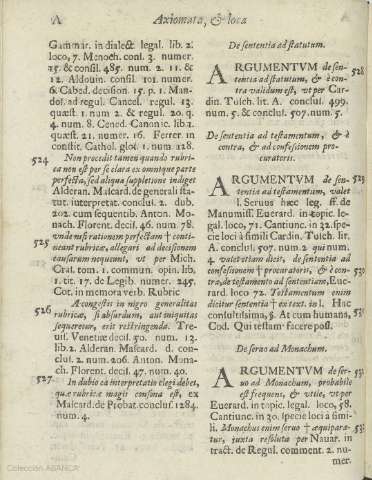 A Axiomata, & loca
Gammar. in dialect. legal. lib. 2.
loco, 7. Menoch. consl. 3. numer.
25. & consil. 485. num. 2. 11. &
12. Aldouin. consil. 101. numer.
6. Cabed. decision. 15. p. 1. Man-
dos. ad regul. Cancel. regul. 13.
quæst. 1 num 2. & regul. 20. q.
4. num. 8. Cened. Canonic. lib. 1.
quæst. 21. numer. 16. Ferrer in
constit. Cathol. glos. 1. num. 128.
524 Non procedit tamen quando rubri-
ca non est per se clara ex omnique parte
perfecta, sed aliqua suppletione indiget
Alderan. Mascard. de generali sta-
tut. interpretat. conclus. 2. dub.
202. cum sequentib. Anton. Mo-
nach. Florent. decis. 46. num. 78.
unde nisi rationem perfectam † conti-
525 neant rubricæ, allegari ad decisionem
causarum nequeunt, ut per Mich.
Crat. tom. 1. commun. opin. lib.
1. tit. 17. de Legib. numer. 245.
Cot. in memora verb. Rubric
Æ congestis in nigro generalitas
526 rubricæ, si absurdum, aut iniquitas
sequeretur, erit restringenda. Tre-
uis. Venetiæ decis. 50. num. 13.
lib. 2. Alderan. Mascard. d. con-
clus. 2. num. 206. Anton. Mona-
ch. Florent. decis. 47. num. 40.
527 In dubio ea interpretatio elegi debet,
quæ rubricæ magis consona est, ex
Mascard. de Probat. conclus. 1284.
num. 4.
De sententia ad statutum.
ARGUMENTUM de sen- 528
tentia ad statutum, & è con-
tra validum est, ut per Car-
din. Tusch. lit. A. conclus. 499.
num. 5. & conclus. 507. num. 5.
De sententia ad testamentum, & è
contra, & ad confessionem pro-
curatoris.
ARGUMENTUM de sen- 529
tentia ad testamentum, valet
l. Seruus hæc leg. ff. de
Manumiss. Euerard. in topic. le-
gal. loco, 71. Cantiunc. in 32. spe-
cie loci à simili Cardin. Tusch. lit.
A. conclus. 507. num. 2 qui num.
4 valet etiam dicit, de sententia ad
confessionem † procuratoris, & è con- 530
tra, de testamento ad sententiam, Euer-
rard. loco 72. Testamentum enim
dicitur sententia † ex text. in l. Hac
consultissima, §. At cum humana,
Cod. Qui testam. facere poss.
De seruo ad Monachum.
ARGUMENTUM de ser-
uo ad Monachum, probabile
est frequens, & utile, ut per
Euerard. in topic. legal. loco, 58.
Cantiunc. in 30. specie loci à simi-
li. Monachus enim seruo † æquipara-
tur, juxta resoluta per Nauar. in
tract. de Regul. comment. 2. nu-
mer.
Colección ABANCA